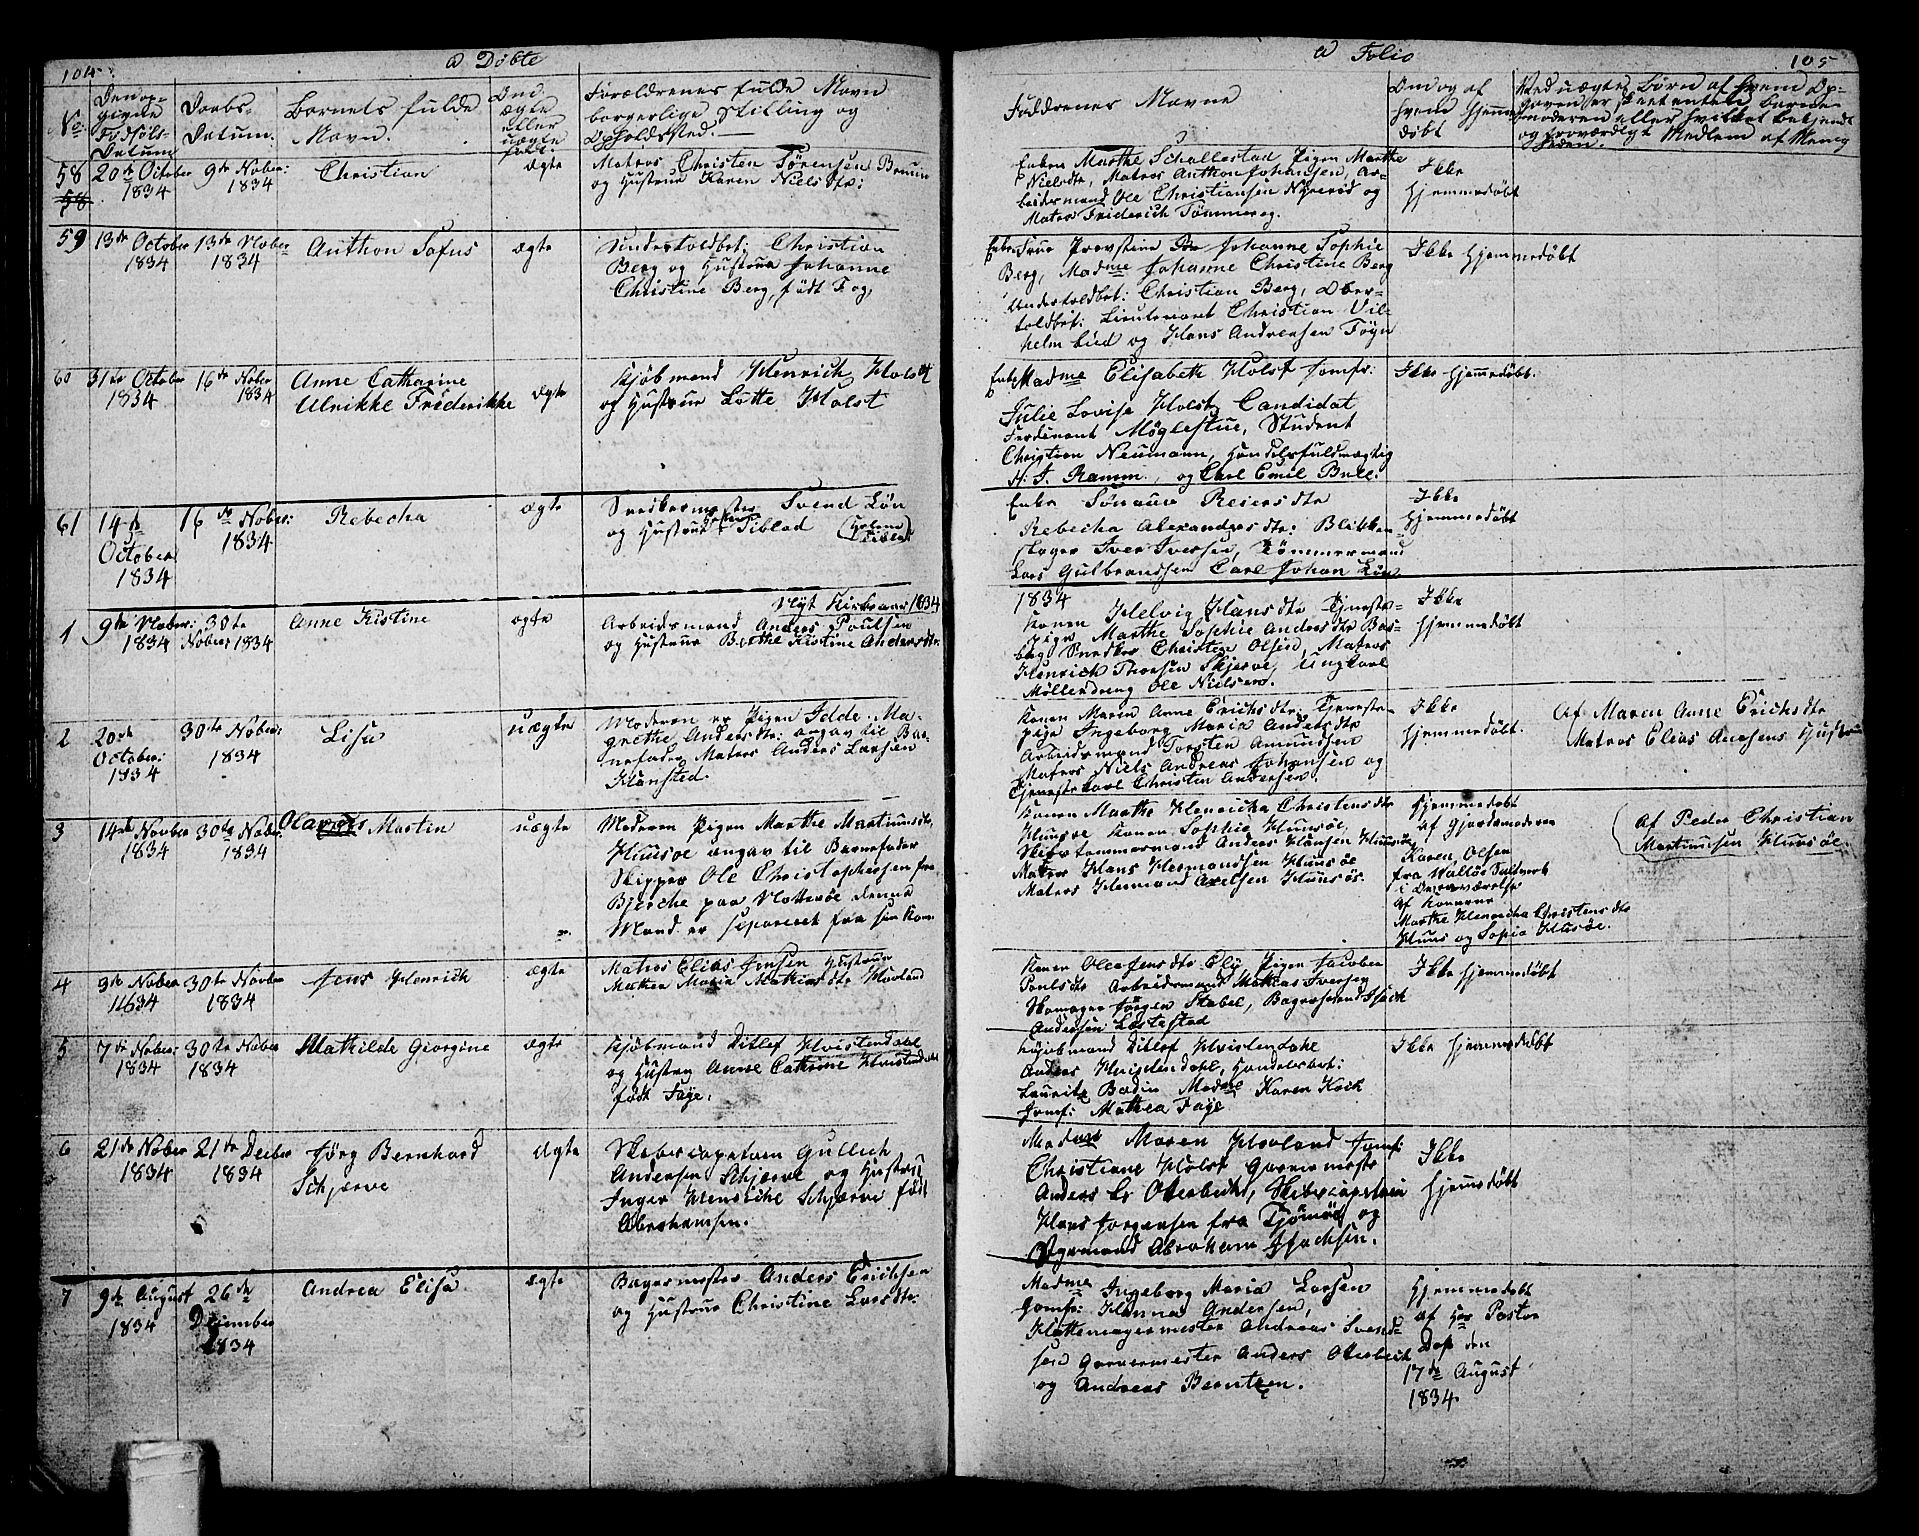 104
a Døbte
No
Den opgivne Fødsels-Datum
Daabs-Datum.
Barnets fulde Navn.
Om ægte eller uægte født.
Forældrenes fulde Navn
borgerlige Stilling og
Opholdssted.
58
58
20de October
1834
9de Nober:
1834
Christian
ægte
Matros Christen Sørensen Bruun
og Hustrue Karen Niels Dtr:
59
13de October
1834
13de Nober
1834
Anthon Sofus
ægte
Undertoldbet: Christian
Berg og Hustrue Johanne
Christine Berg, født Fog,
60
31te October
1834
16de Nober
1834
Anne Catharine
Ulrikke Friderikke
ægte
Kjøbmand Henrich Holst
og Hustrue Lotte Holst
61
14de
October
1834
16de Nober:
1834
Rebecha
ægte
Snedkermester Svend Løn
og Hustrue Siblad
Nyt Kirkeaar 1834
1
9de Nober:
1834
30te
Nober: 1834
Anne Kistine
ægte
Arbeidsmand Anders Poulsen
og Hustrue Berthe Kistine Andersdtr.
2
20de
October:
1834
30te Nober:
1834
Lisa
uægte
Moderen er Pigen Idde Ma-
grethe Andersdtr: angav til Bar-
nefader Matros Anders Larsen
Klansted.
3
14de Novber
1834
30te Nober
1834
Olavus Martin
uægte
Moderen Pigen Marthe Martinusdtr
Huusøe angav til Barnefader
Skipper Ole Christophersen fra
Bjerche paa Nøtterøe denne
Mand er separeret fra sin Kone
4
9de Nober
1834
30te Novber
1834
Jens Henrich
ægte
Matros Elias Jensen Hustrue
Mathea Maria Mathiasdtr Hovland
5
7de Nober:
1834
30te Nober
1834
Mathilde Georgine
ægte
Kjøbmand Ditlef Hvistendahl
og Hustru Anne Cathrine Hvistendahl
født Faye.
6
21de Nober
1834
21de Decber
1834
Jørg Bernhard
Schjerve
ægte
Skibscapetain Gullich
Andersen Schjerve og Hustrue
Inger Henriche Schjerve født
Abrahamsen.
7
9de August
1834
26de
December
1834
Andrea Elisa
ægte
Bagermester Anders Erichsen
og Hustrue Christine Larsdtr:
a Folio
105
Faddrenes Navne
Om og af
hvem hjemme
døbt
Ved uægte Børn af hvem Op-
gaven er skeet enten Barne-
moderen eller hvilket bekjendt
og troværdigt Medlem af Menig
heden.
Enken Marthe Schallestad Pigen Marthe
Nielsdtr, Matros Anthon Johansen, Ar-
beidsmand Ole Christiansen Nyerød og
Matros Friderich Tømmerag.
Ikke
hjemmedøbt
Enke Frue Provstine Johanne Sophie
Berg, Madme Johanne Christine Berg
Undertoldbet: Christian Berg, Over-
toldbet: Lieutenant Christian Vil-
helm Lied og Hans Andreasen Føyn
Ikke hjemmedøbt
Enke Madme Elisabeth Holst Jomfr:
Julie Lovise Holst Candidat
Ferdinant Møglestue, Student
Christian Neumann, Handelsfuldmægtig
H: J. Ramm, og Carl Emil Bull.
Ikke hjemmedøbt.
Enke Reiersdtr
Rebecha Alexandersdtr: Blikken-
slager Iver Iversen, Tømmermand
Lars Gulbrandsen Carl Johan Løn
Ikke
hjemmedøbt
1834
Konen Helvig Hansdtr Tjeneste-
Pige Marthe Sophie Andersdtr Bas-
berg Snedker Christen Olsen, Matros
Henrich Thorsen Skjerve, Ungkarl
Møllerdreng Ole Nielsen.
Ikke
hjemmedøbt
Konen Maren Anne Erichsdtr: Tjeneste-
pige Ingeborg Maria Andersdtr
Arbeidsmand Torsten Amundsen
Matros Niels Andreas Johansen og
Tjenestekarl Christen Andersen.
Ikke
hjemmedøbt.
Af Maren Anne Erichsdtr
Matros Elias Hustrue
Konen Marthe Henricha Christensdtr
Huusøe Konen Sophie Huusøe,
Skibstømmermand Anders Hansen Huusøe
Matros Hans Hermandsen Huusøe
Matros Hermand Axelsen Huusøe.
Hjemmedøbt
af Gjordemoderen
Karen Olsen
fra Valløe Saltværk
i Overværelse
af Konerne
Marthe Henricha Christensdtr
Huus og Sopia Husøe.
af Peder Christian
Martinusen Huusøe.
Konen Olea Jensdtr Elij Pigen Jacobea
Poulsdtr Arbeidsmand Mathias Iversen
Skomager Jørgen Stabel, Bagersvend Isach
Andersen Løstestad
Ikke hjemmedøbt
Kjøbmand Ditlef Hvistendahl
Anders Hvistendahl, Handelsbet:
Lauritz Bodin Madme Karen Kock
Jomf: Mathea Faye
Ikke hjemmedøbt
Madme Maren Hovland Jomf:
Christiane Holst Garvermester
Anders Lr Oterbech, Skibscapetain
Hans Jørgensen fra Tjømøe og
Styrmand Abraham Isachsen.
Ikke
hjemmedøbt
Madme Ingeborg Maria Larsen
Jomfr: Hanna Andersen,
Hattemagermester Andreas Svend-
sen Garvermester Anders Oterbech
og Andreas Berntzen.
Hjemmedøbt
af Hrr Pastor
Dop den
17de August
1834